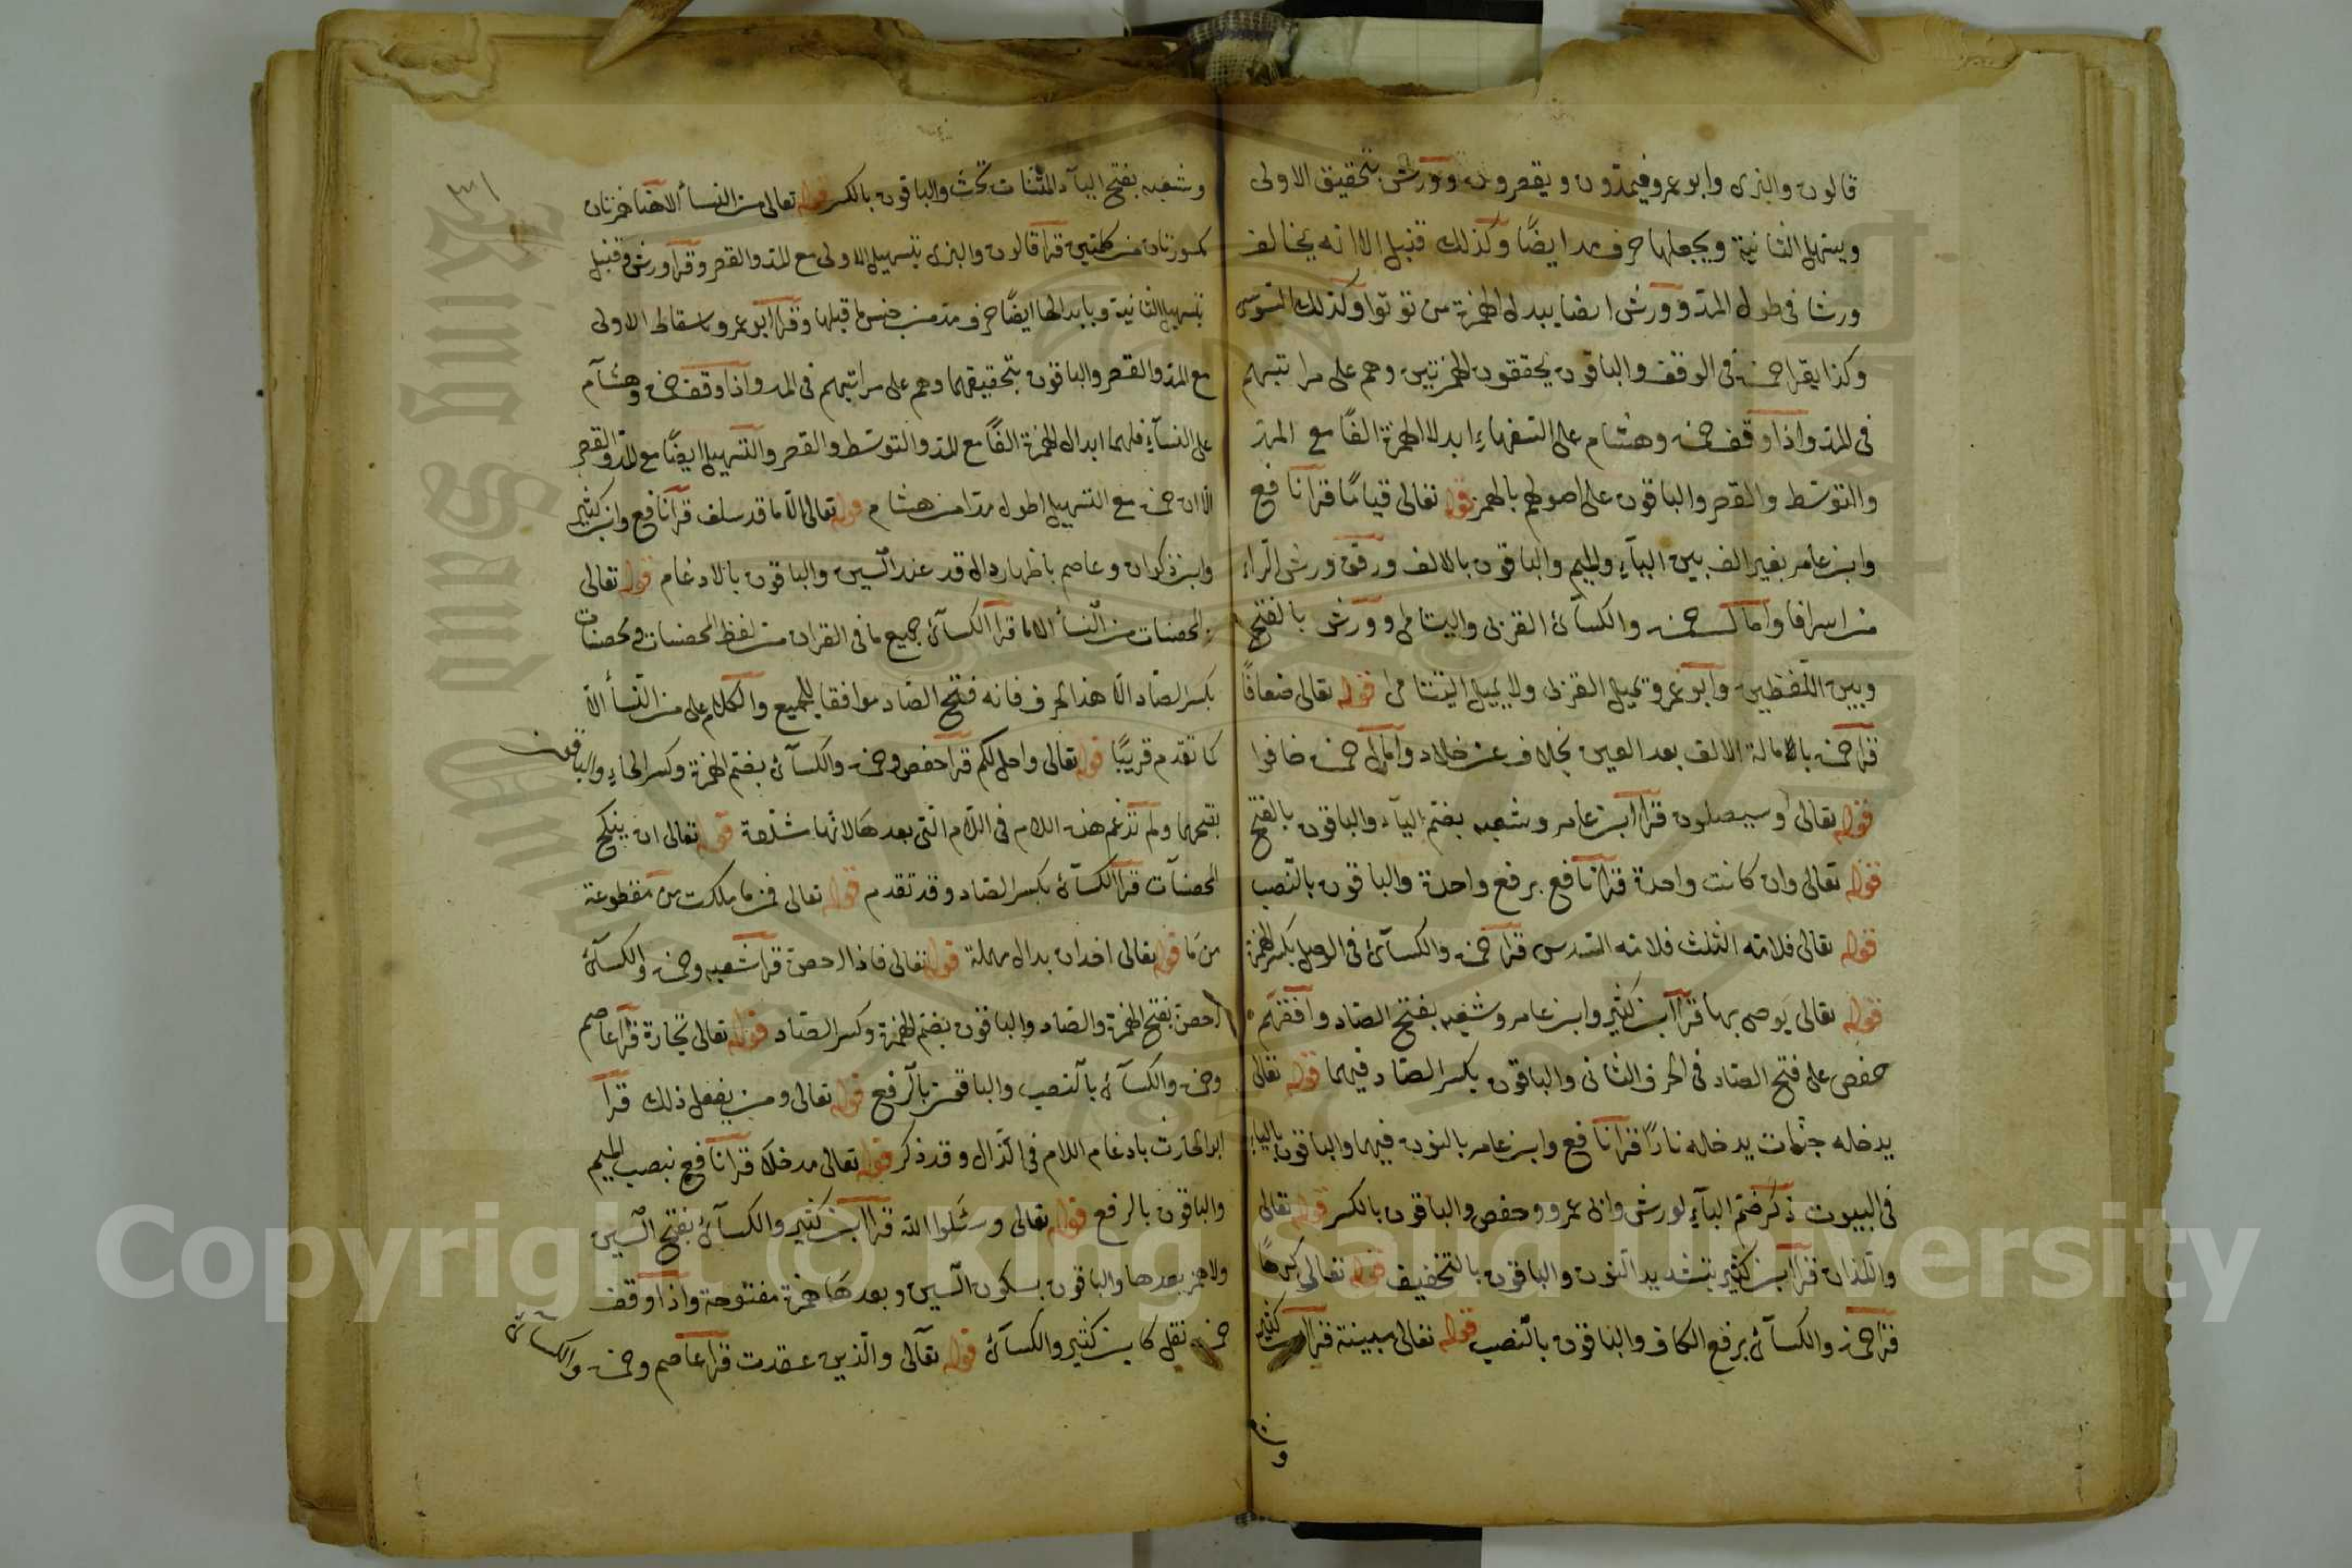 قالون والبزى وابو عمرو فيمدون ويقصرون وورش بتحقيق الاولى
ويسهل الثانية ويجعلها حرف مد ايضًا وكذلك قنبل الا انه يخالف
ورشا فى طول المد وورش ايضا يبدل الهمزة من توتوا وكذلك السوسى
وكذا يقرا حمزه فى الوقف والباقون يحققون الهمزتين وهم على مراتبهم
فى المد واذا وقف حمزه وهشام على السفهاء ابدلا الهمزة الفًا مع المد
والتوسّط والقصر والباقون على اصولهم بالهمز قوله تعالى قيامًا قرا نافع
وابن عامر بغير الف بين اليآء والميم والباقون بالالف ورقق ورش الراء
من اسرافا وامال حمزه والكسآئ القربى واليتامى وورش بالفتح
وبين اللفظين وابو عمرو يميل القربى ولا يميل اليتامى قوله تعالى ضعافًا
قرا حمزه بالامالة الالف بعد العين بخلاف عن خلاد وامال حمزه خافوا
قوله تعالى وسيصلون قرا ابن عامر وشعبه بضم اليآء والباقون بالفتح
قوله تعالى وان كانت واحدة قرا نافع برفع واحدة والباقون بالنصب
قوله تعالى فلامه الثلث فلامه السدس قرا حمزه والكسآئ فى الوصل بكسر الهمزة
قوله تعالى يوصى بها قرا ابن كثير وابن عامر وشعبه بفتح الصاد وافقهم
حفص على فتح الصاد فى الحرف الثانى والباقون بكسر الصاد فيهما قوله تعالى
يدخله جنات يدخله نارًا قرا نافع وابن عامر بالنون فيهما والباقون بالياء
فى البيوت ذكر ضم البآء لورش وابى عمرو وحفص والباقون بالكسر قوله تعالى
واللذان قرا ابن كثير بتشديد النون والباقون بالتخفيف قوله تعالى كرهًا
قرا حمزه والكسآئ برفع الكاف والباقون بالنصب قوله تعالى مبينة قرا ابن كثير
وشعبه
٣١
وشعبه بفتح اليآء المثنات تحت والباقون بالكسر قوله تعالى من النسأ الا هنا همزتان
مكسورتان من كلمتين قرا قالون والبزى بتسهيل الاولى مع المد والقصر وقرا ورش وقنبل
بتسهيل الثانية وبابدالها ايضًا حرف مد من جنس ما قبلها وقرا ابو عمرو باسقاط الاولى
مع المد والقصر والباقون بتحقيقهما وهم على مراتبهم فى المد واذا وقف حمزه وهشآم
على النسآء فلهما ابدال الهمزة الفًا مع المد والتوسّط والقصر والتسهيل ايضًا مع المد والقصر
الا ان حمزه مع التسهيل اطول مدا من هشام قوله تعالى الا ما قد سلف قرا نافع وابن كثير
وابن ذكوان وعاصم باظهار دال قد عند السين والباقون بالادغام قوله تعالى
والمحصنات من النسأ الا ما قرا الكسآئ جميع ما فى القران من لفظ المحصنات ومحصنات
بكسر الصاد الا هذا الحرف فانه فتح الصاد موافقا للجميع والكلام على من النسأ الا
كما تقدم قريبًا قوله تعالى واحل لكم قرا حفص وحمزه والكسآئ بضم الهمزة وكسر الحاء والباقون
بفتحهما ولم تدغم هذه اللام فى اللام التى بعدها لانها مشددة قوله تعالى ان ينكح
المحصنات قرا الكسآئ بكسر الصاد وقد تقدم قوله تعالى فمن ما ملكت من مقطوعة
من ما قوله تعالى اخدان بدال مهملة قوله تعالى فاذا احصن قرا شعبه وحمزه والكسآئ
احصن بفتح الهمزة والصاد والباقون بضم الهمزة وكسر الصاد قوله تعالى تجارة قرا عاصم
وحمزه والكسآئ بالنصب والباقون بالرفع قوله تعالى ومن يفعل ذلك قرا
ابو الحارث بادغام اللام فى الذال وقد ذكر قوله تعالى مدخلا قرا نافع بنصب الميم
والباقون بالرفع قوله تعالى وسئلوا الله قرا ابن كثير والكسآئ بفتح السين
ولا همز بعدها والباقون بسكون السين وبعدها همزة مفتوحة واذا وقف
حمزه نقل كابن كثير والكسآئ قوله تعالى والذين عقدت قرا عاصم وحمزه والكسآئ
Copyright © King Saud University